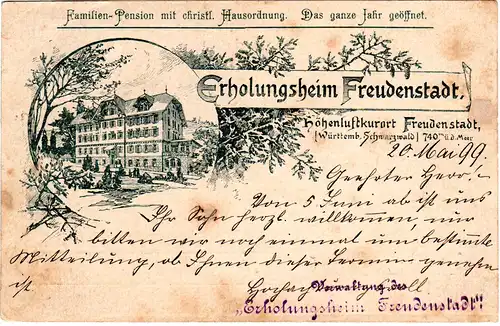 Familien-Pension mit christl. Hausordnung. Das ganze Jahr geöffnet.
Erholungsheim Freudenstadt,
Höhenluftkurort Freudenstadt,
(Württemb. Schwarzwald) 740 m ü. d. Meer
20. Mai 99.
Geehrter Herr.
Von 5 Juni ab ist uns
Ihr Sohn herzl. willkommen, nur
bitten wir noch einmal um bestimmte
Mitteilung, ob Ihnen dieser Termin genehm
ist.
Verwaltung des
„Erholungsheim Freudenstadt"